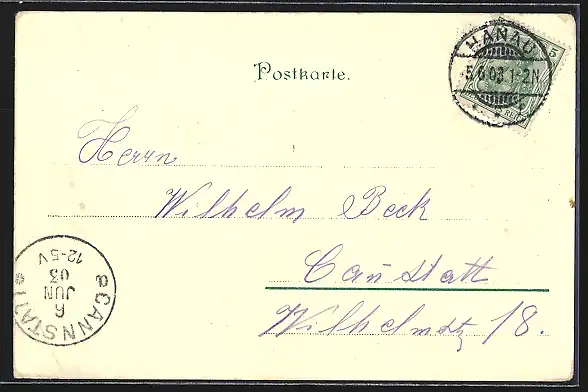 Postkarte.
HANAU
5.6.03 1-2N
5
Herrn
Wilhelm Beck
Cannstatt
Wilhelmstr. 18.
CANNSTATT
6
JUN
03
12-5V